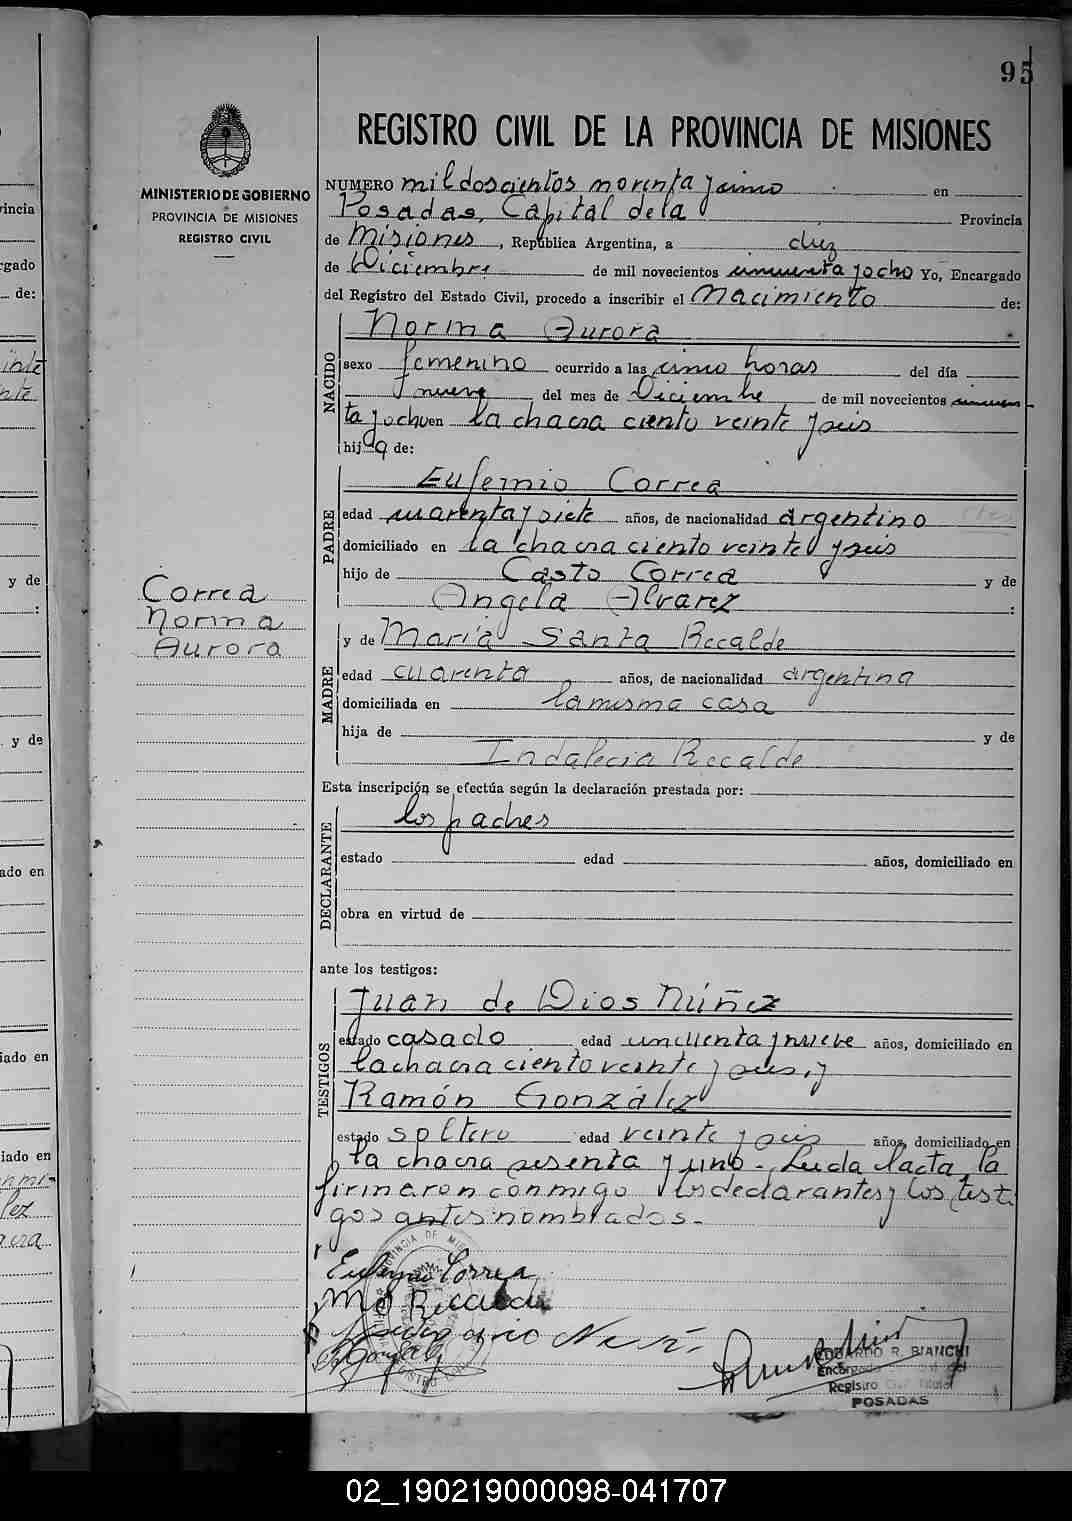 95
REGISTRO CIVIL DE LA PROVINCIA DE MISIONES
MINISTERIO DE GOBIERNO
PROVINCIA DE MISIONES
REGISTRO CIVIL
NUMERO mil doscientos noventa y cinco en
Posadas, Capital de la Provincia
de Misiones, República Argentina, a diez
de Diciembre de mil novecientos cincuenta y ocho Yo, Encargado
del Registro del Estado Civil, procedo a inscribir el Nacimiento de:
NACIDO
Norma Aurora
sexo femenino ocurrido a las cinco horas del día
nueve del mes de Diciembre de mil novecientos cincuen
ta y ocho en la chacra ciento veinte y seis
hija de:
PADRE
Eufemio Correa
edad cuarenta y siete años, de nacionalidad argentino
domiciliado en la chacra ciento veinte y seis
hijo de Casto Correa y de
Angela Alvarez :
Correa
Norma
Aurora
MADRE
y de María Santa Recalde
edad cuarenta años, de nacionalidad argentina
domiciliada en la misma casa
hija de y de
Indalecia Recalde
Esta inscripción se efectúa según la declaración prestada por:
DECLARANTE
los padres
estado edad años, domiciliado en
obra en virtud de
ante los testigos:
TESTIGOS
Juan de Dios Núñez
estado casado edad cincuenta y nueve años, domiciliado en
la chacra ciento veinte y seis, y
Ramón González
estado soltero edad veinte y seis años, domiciliado en
la chacra sesenta y uno - Leída el acta, la
firmaron conmigo los declarantes y los testi
gos antes nombrados.-
Eufemio Correa
EDUARDO R. BIANCHI
Encargado
Registro Civil
POSADAS
y de
:
de:
ado en
02_190219000098-041707